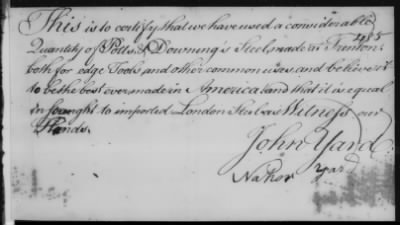 This is to certify that we have used a considerable
Quantity of Potts & Downing's Steel made at Trenton,
both for edge Tools and other common uses and believe it
to be the best ever made in America and that it is equal
in fought to imported London Steel as Witness our
Hands.
John Yard
Nahor Yard